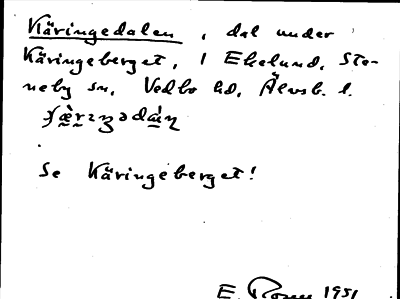 Käringedalen, dal under
Käringeberget, i Ekelund, Ste-
neby sn, Vedbo hd, Älvsb. l.
Se Käringeberget!
E. Rosen 1951